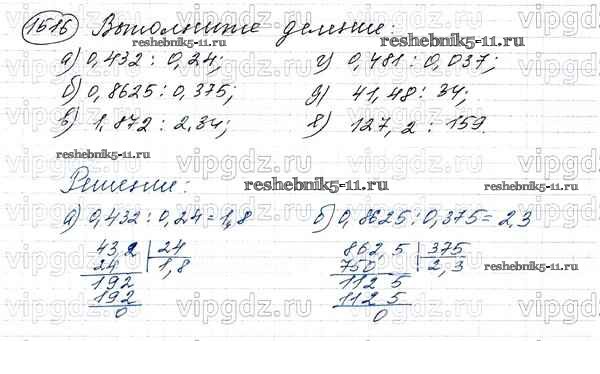 1516 Выполните деление:
а) 0,432 : 0,24; г) 0,481 : 0,037;
б) 0,8625 : 0,375; д) 41,48 : 34;
в) 1,872 : 2,34; е) 127,2 : 159.
Решение:
а) 0,432 : 0,24 = 1,8 б) 0,8625 : 0,375 = 2,3
43,2 24 862,5 375
24 1,8 750 2,3
192 112 5
192 112 5
0 0
reshebnik5-11.ru
vipgdz.ru